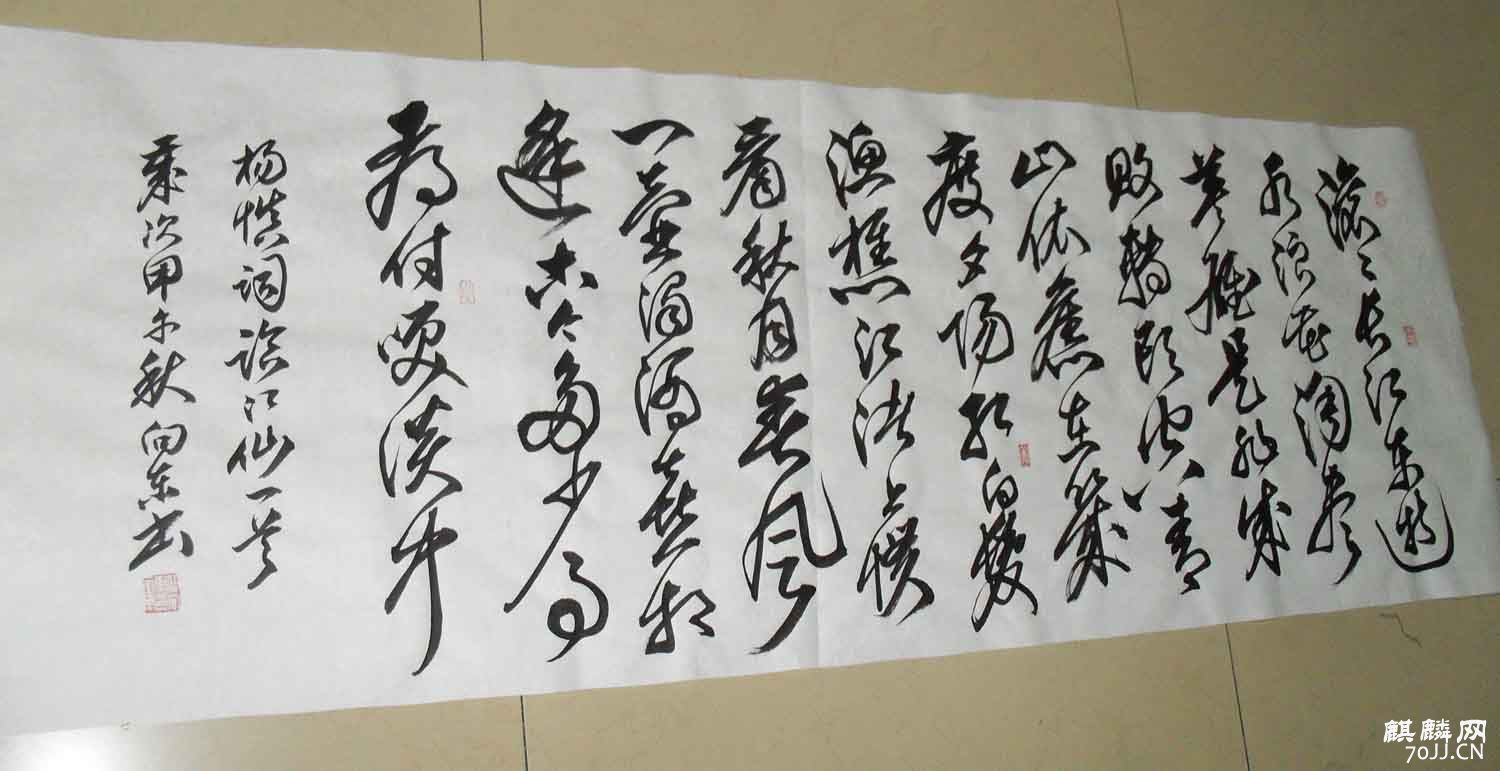 滚滚长江东逝
水浪花淘尽
英雄是非成
败转头空青
山依旧在几
度夕阳红白发
渔樵江渚上惯
看秋月春风
一壶浊酒喜相
逢古今多少事
都付笑谈中
杨慎词临江仙一首
岁次甲午秋向东书
麒麟网
70JJ.CN